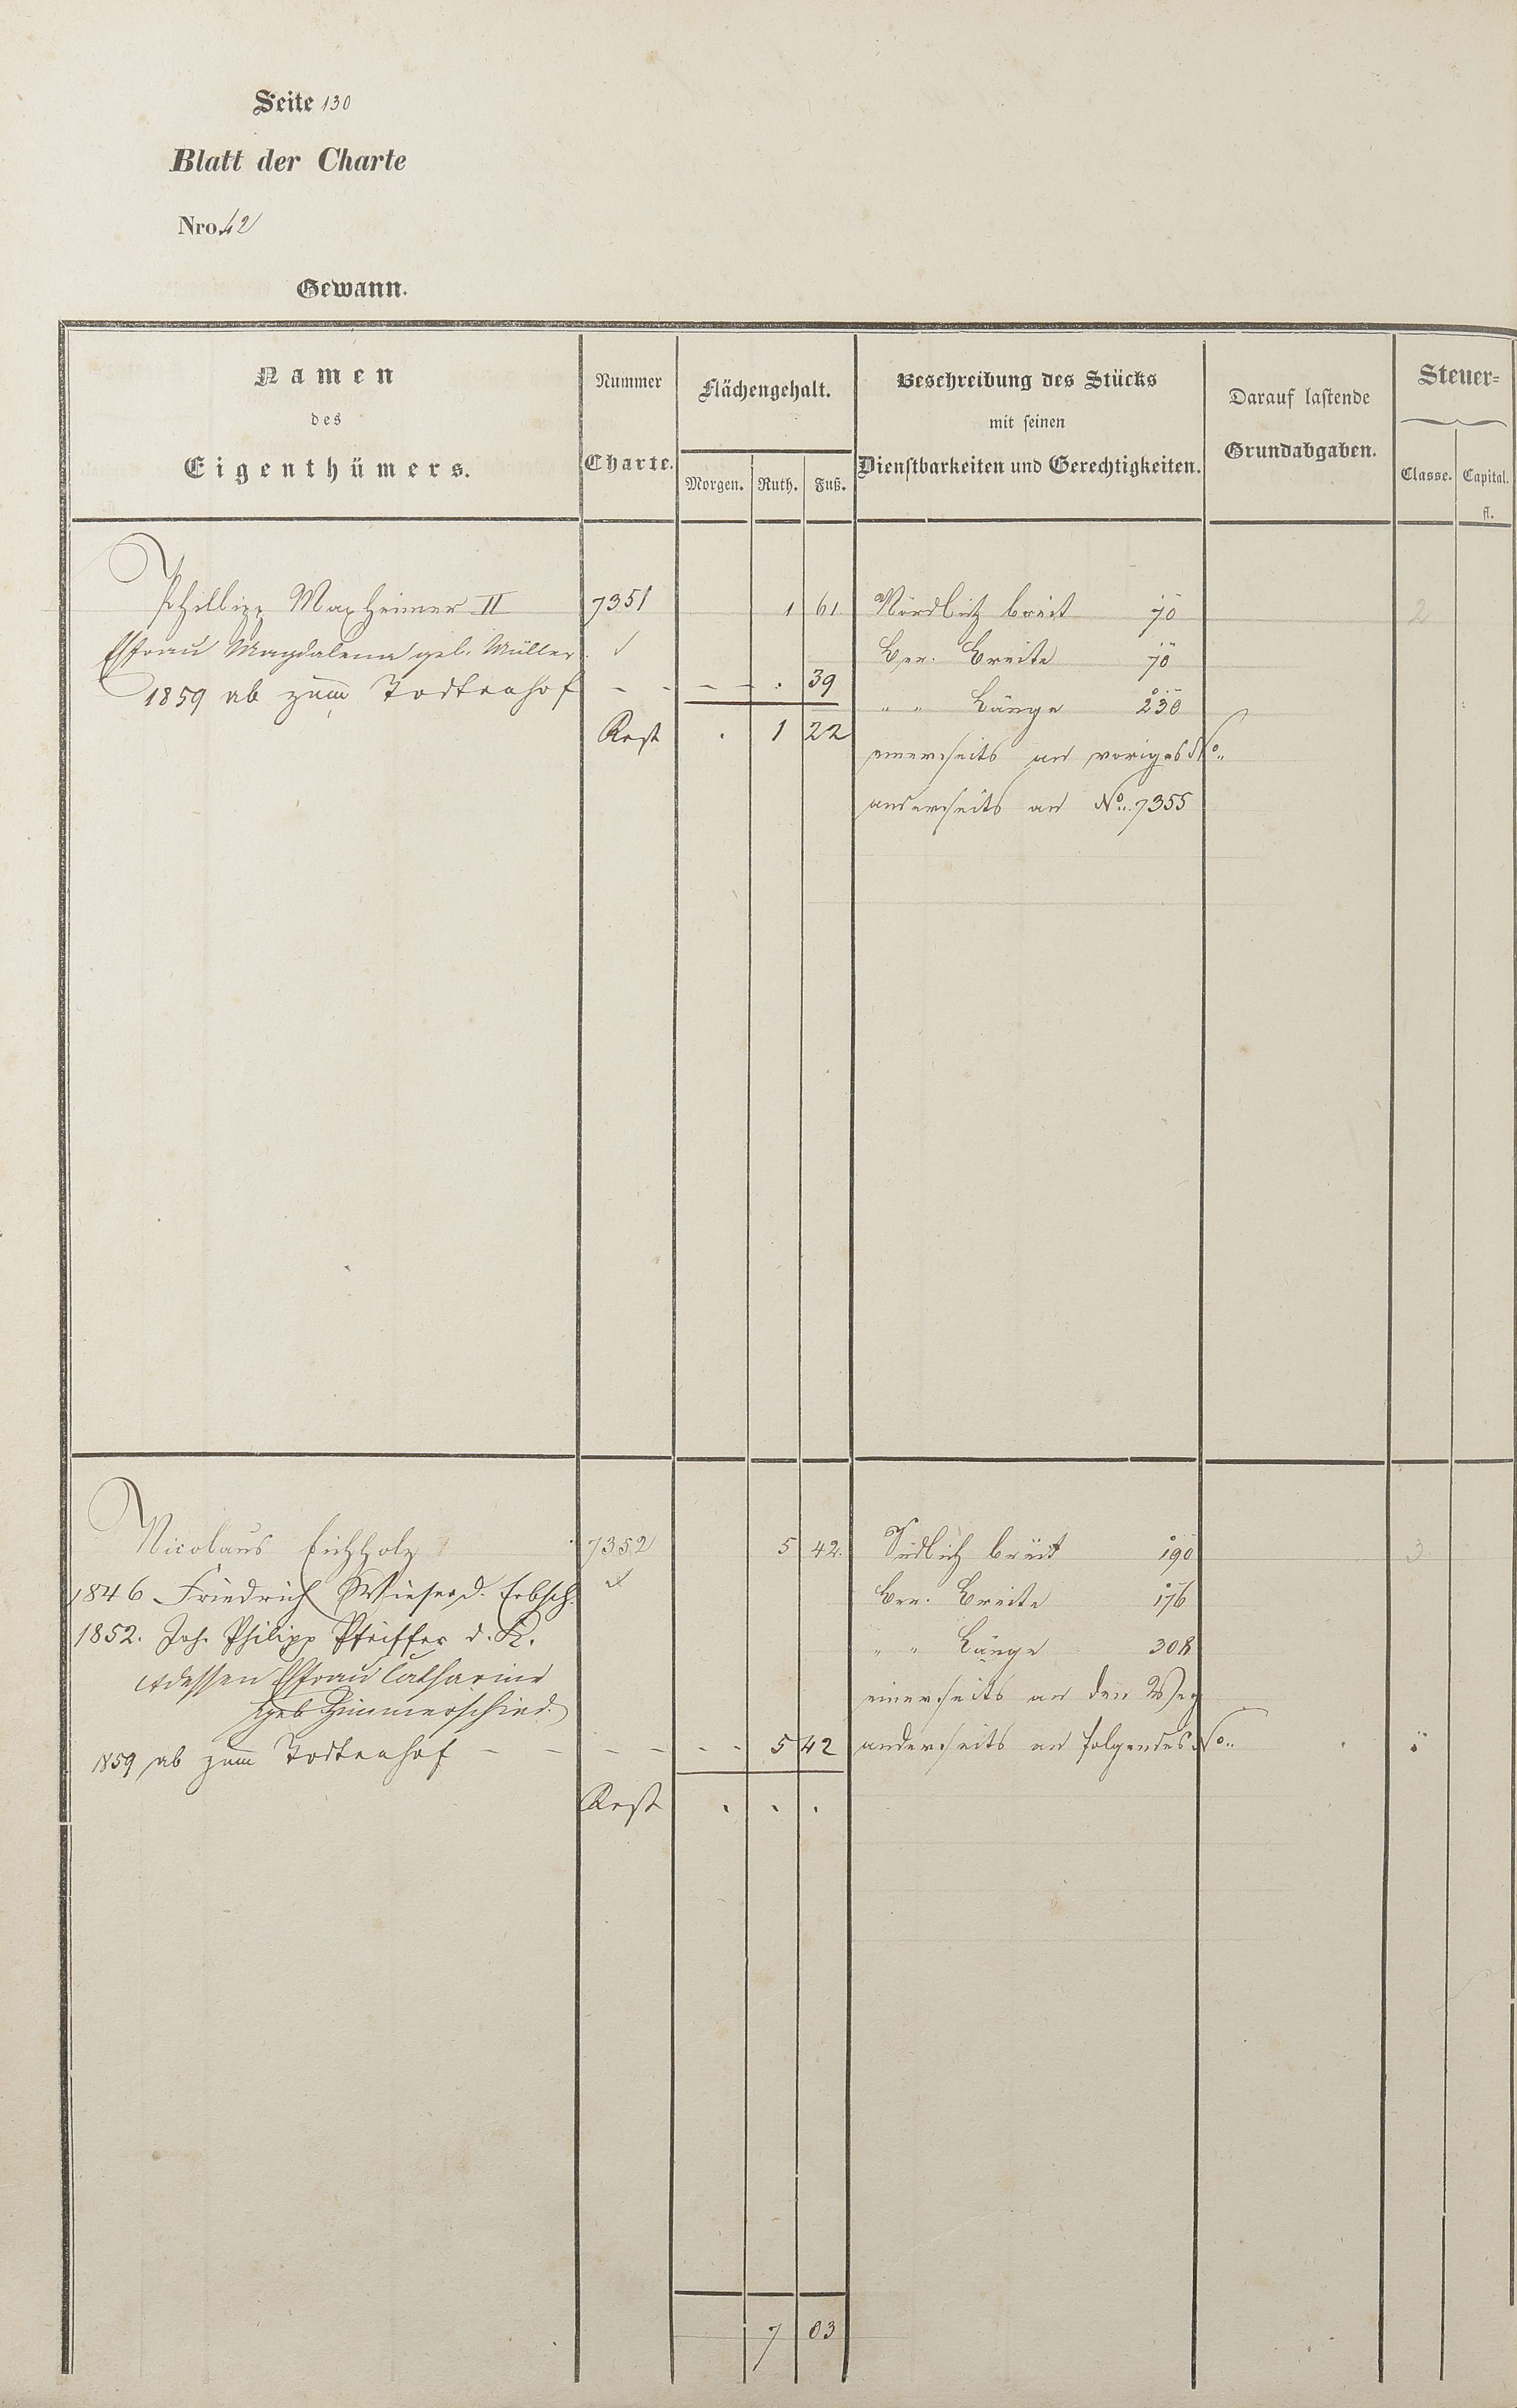 Seite 130
Blatt der Charte
Nro. 42
Gewann.
Namen
des
Eigenthümers.
Nummer
Charte.
Flächengehalt.
Morgen. Ruth. Fuß.
Beschreibung des Stücks
mit seinen
Dienstbarkeiten und Gerechtigkeiten.
Darauf lastende
Grundabgaben.
Steuer=
Classe. Capital.
fl.
Phillipp Maxheimer II 7351 1 61 Nördlich breit 70 2
Ehfrau Magdalena geb. Müller Ber. Breite 70
1859 ab zum Todtenhof - - - - . 39
" " Länge 230
Rest . 1 22
einerseits an voriges No.
anderseits an No. 7355
Nicolaus Eichholz 7352 5 42. Südlich breit 190 3
1846 Friedrich Wieser d. Erbsch. Ber. Breite 176
1852. Joh. Philipp Pfeiffer d. K. " " Länge 308
dessen Ehfrau Catharine
geb Zimmerschied. einerseits an den Weg
1859 ab zum Todtenhof - - - - - - 5 42 anderseits an folgendes No.
Rest . . .
7 03